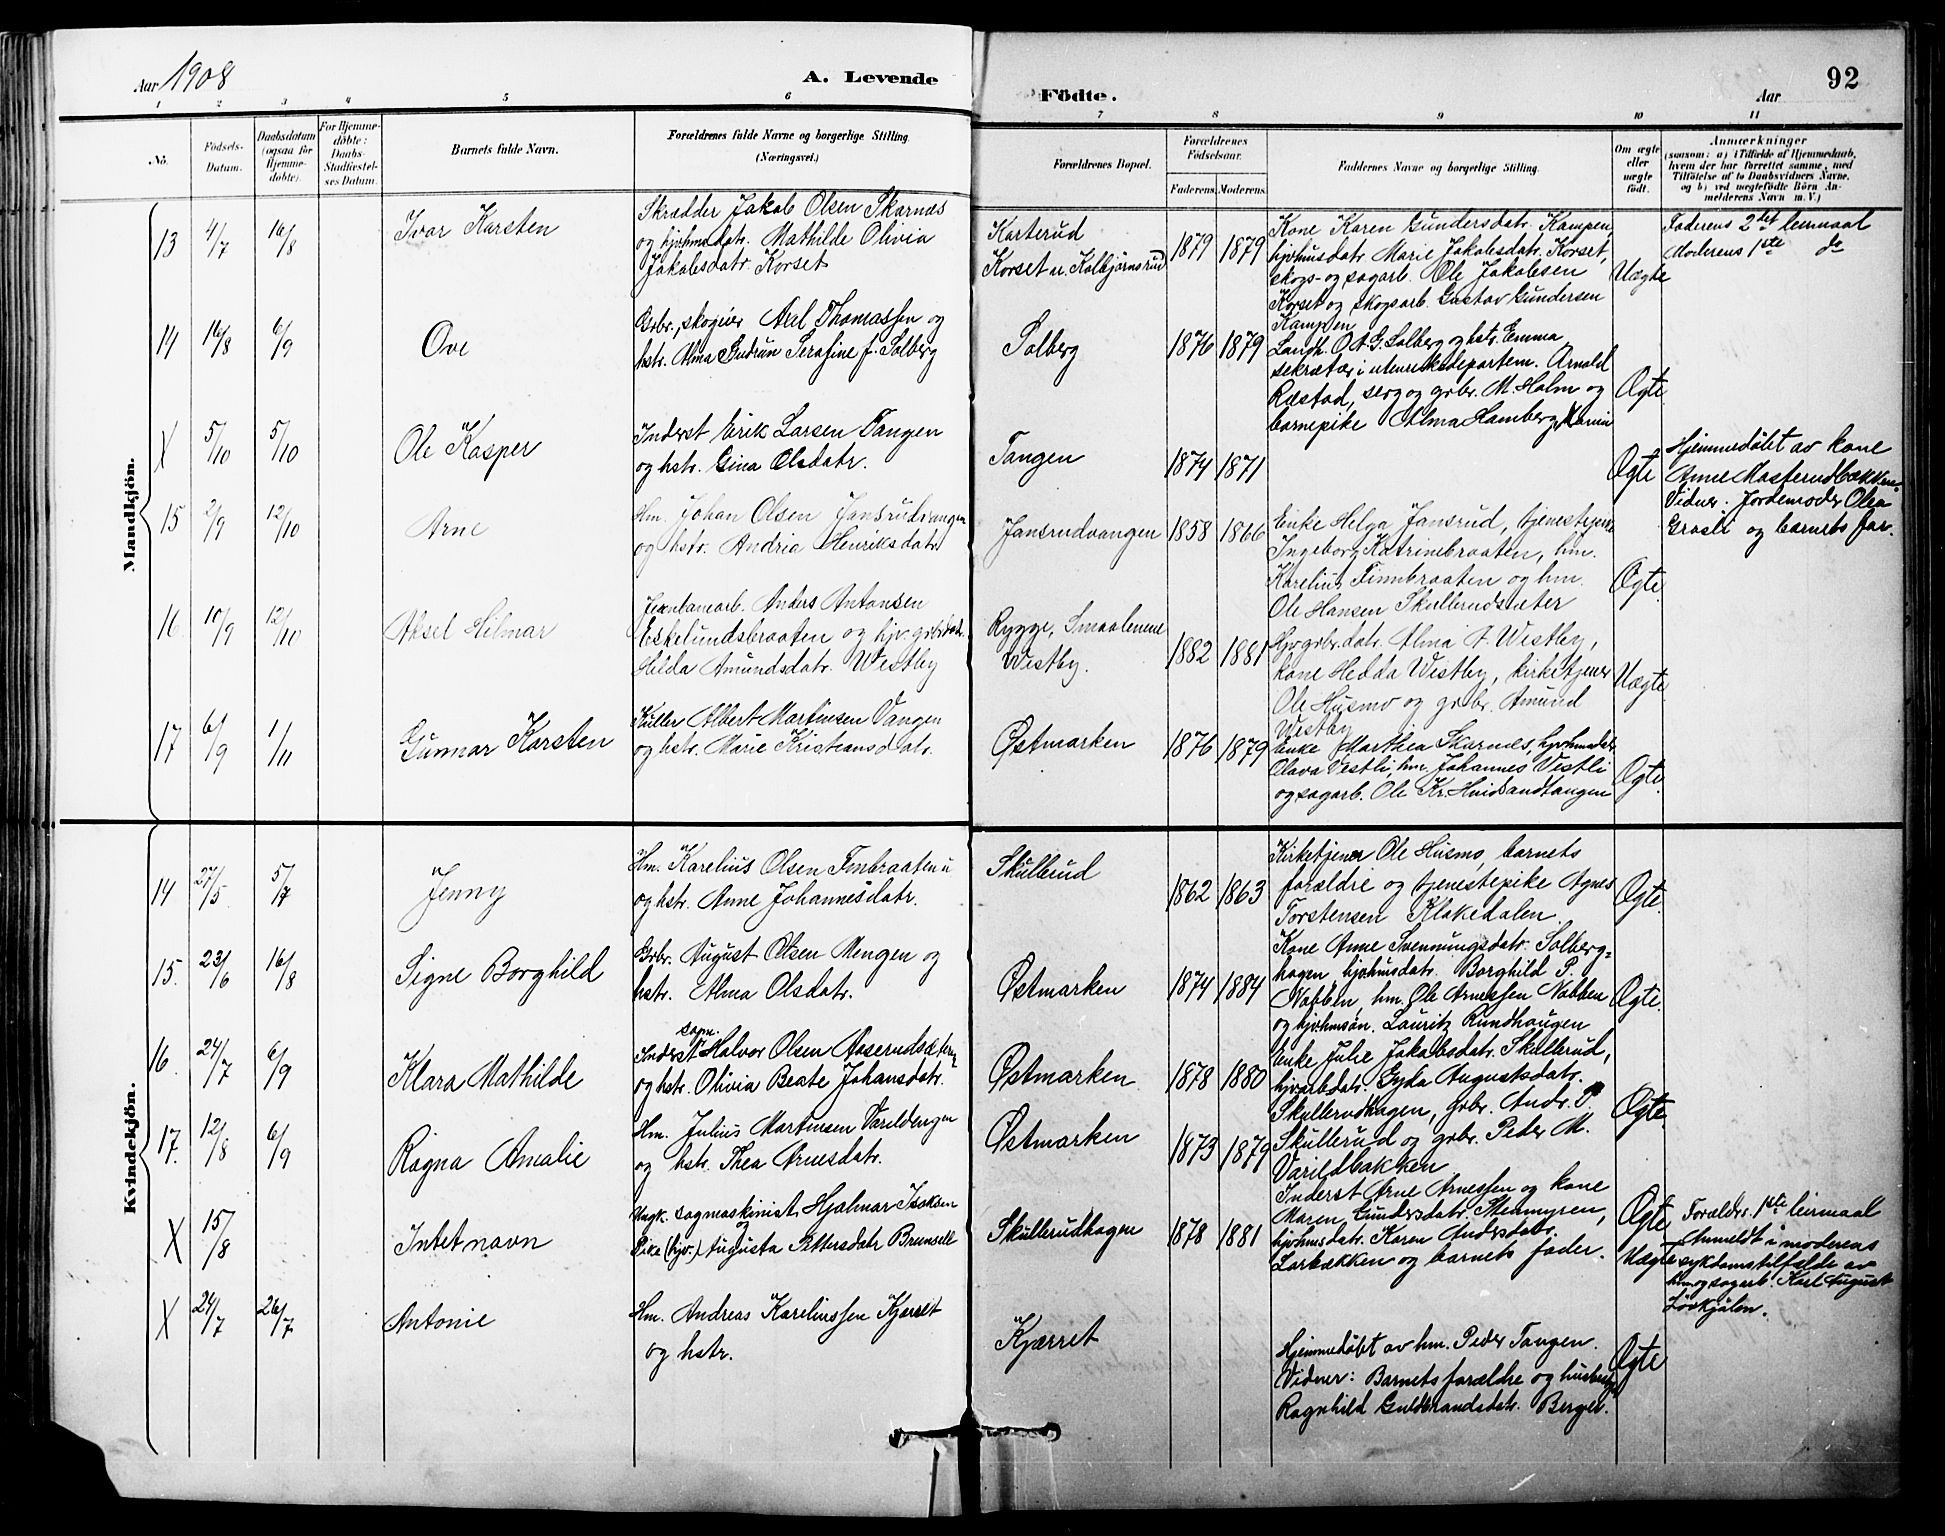 Aar 1908
A. Levende
Födte.
Aar
92
1 2 3 4 5 6 7 8 9 10 11
No.
Födsels-
Datum.
Daabsdatum
(ogsaa for
Hjemme-
døbte).
For Hjemme-
døbte:
Daabs-
Stadfæstel-
ses Datum.
Barnets fulde Navn.
Forældrenes fulde Navne og borgerlige Stilling
(Næringsvei.)
Forældrenes Bopæl.
Forældrenes
Födselsaar.
Faderens. Moderens.
Faddernes Navne og borgerlige Stilling.
Om ægte
eller
uægte
født.
Anmærkninger
(saasom: a) i Tilfælde af Hjemmedaab,
hvem der har forrettet samme, med
Tilföielse af to Daabsvidners Navne,
og b) ved uægtefödte Börn An-
melderens Navn m. V.)
Mandkjön.
13 4/7 16/8 Ivar Karsten
Skrædder Jakob Olsen Skarnæs
og hjvhmdatr. Mathilde Olivia
Jakobsdatr. Korset
Karterud
Korset u. Kolbjørnsrud
1879 1879
Kone Karen Gundersdatr. Kampen,
hjvhusdatr. Marie Jakobsdatr. Korset,
skogs- og sagarb. Ole Jakobsen
Korset og skogsarb. Gustav Gundersen
Kampen
Uægte
Faderens 2det leiermaal
Moderens 1ste do
14 16/8 6/9 Ove
Grbr., skogeier Axel Thomassen og
hstr. Alma Gudrun Serafine f. Solberg
Solberg
1876 1879
Landh. O A. G. Solberg og hstr. Emma,
sekretær i utenriksdepartem. Arnold
Ræstad, serg og grbr. M. Holm og
barnepike Alma Hamberg,
Ægte
X 5/10 5/10 Ole Kasper
Inderst Erik Larsen Tangen
og hstr. Gina Olsdatr.
Tangen
1874 1871
Ægte
Hjemmedøbt av kone
Anne Masterudbækken.
Vidner: Jordemoder Olea
Grasli og barnets far.
15 2/9 12/10 Arne
Hm. Johan Olsen Jansrudvangen
og hstr. Andria Henriksdatr.
Jansrudvangen
1858 1866
Enke Helga Jansrud, tjenestepike
Ingeborg Katrinebraaten, hm.
Karelius Finnbraaten og hm.
Ole Hansen Skullerudsæter
Ægte.
16. 10/9 12/10 Aksel Hilmar
Anders Antonsen
Eskelundsbraaten og hjv. grbrdatr.
Hilda Amundsdatr. Westby
Rygge, Smaalenene
Westby.
1882 1881
Hjvgrbr.datr. Alma A. Westby,
kone Hedda Westby, kirketjener
Ole Husmo og grbr. Amund
Westby
Uægte
17 6/9 1/11 Gunnar Karsten
Kuller Albert Martinsen Vangen
og hstr. Marie Kristiansdatr.
Østmarken
1876 1879
Enke Marthea Skarnæs, hjvhmdatr.
Olava Vestli, hm. Johannes Vestli
og sagarb. Ole Kr. Hvidsandtangen
Ægte.
Kvindekjön.
14 27/5 5/7 Jenny
Hm. Karelius Olsen Finbraaten u
og hstr. Anne Johannesdatr.
Skullerud
1862 1863
Kirketjener Ole Husmo, barnets
forældre og tjenestepike Agnes
Torstensen Klakedalen.
Ægte.
15. 23/6 16/8 Signe Borghild
Grbr. August Olsen Mengen og
hstr. Alma Olsdatr.
Østmarken
1874 1884
Kone Anne Svenningsdatr. Solberg=
hagen, hjvhmsdatr. Borghild P.
Nabben, hm. Ole Arnessen Nabben
og hjvhmsøn. Lauritz Rundhaugen
Ægte.
16 24/7 6/9 Klara Mathilde
sagm.
Inderst Halvor Olsen Aaserudsæteren
og hstr. Olivia Beate Johansdatr.
Østmarken
1878 1880
Enke Julie Jakobsdatr. Skullerud,
hjvarbdatr. Gyda Augustsdatr.
Skullerudhagen, grbr. Andr. P.
Skullerud og grbr. Peder M.
Varildbakken
Ægte
17. 12/8 6/9 Ragna Amalie
Hm. Julius Martinsen Varildengen
og hstr. Thea Arnesdatr.
Østmarken
1873 1879
Inderst Arne Arnessen og kone
Maren Gundersdatr. Stenmyren,
hjvhmsdatr. Karen Andersdatr.
Larbækken og barnets fader.
Ægte
X 15/8 Intet navn
Ungk. sagmaskinist Hjalmar Isaksen
og
Pike (hjv.) Augusta Pettersdatr Brunsell
Skullerudhagen
1878 1881
Uægte
Forældrs. 1ste leiermaal
Anmeldt i moderens
sykdomstilfælde av
hm og sagarb. Karl August
Løvhjølen.
X 24/7 26/7 Antonie
Hm. Andreas Kareliussen Kjærret
og hstr.
Kjærret
Hjemmedøbt av hm. Peder Tangen.
Vidner: Barnets forældre og
Ragnhild Guldbrandsdatr. Berger.
Ægte